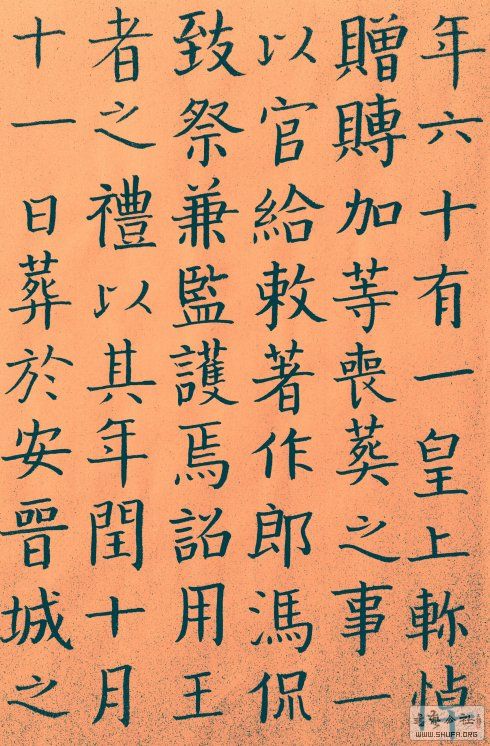 年六十有一皇上軫悼
贈賻加等喪葬之事一
以官給敕著作郎馮侃
致祭兼監護焉詔用王
者之禮以其年閏十月
十一日葬於安晉城之
WWW.SHUFA.ORG